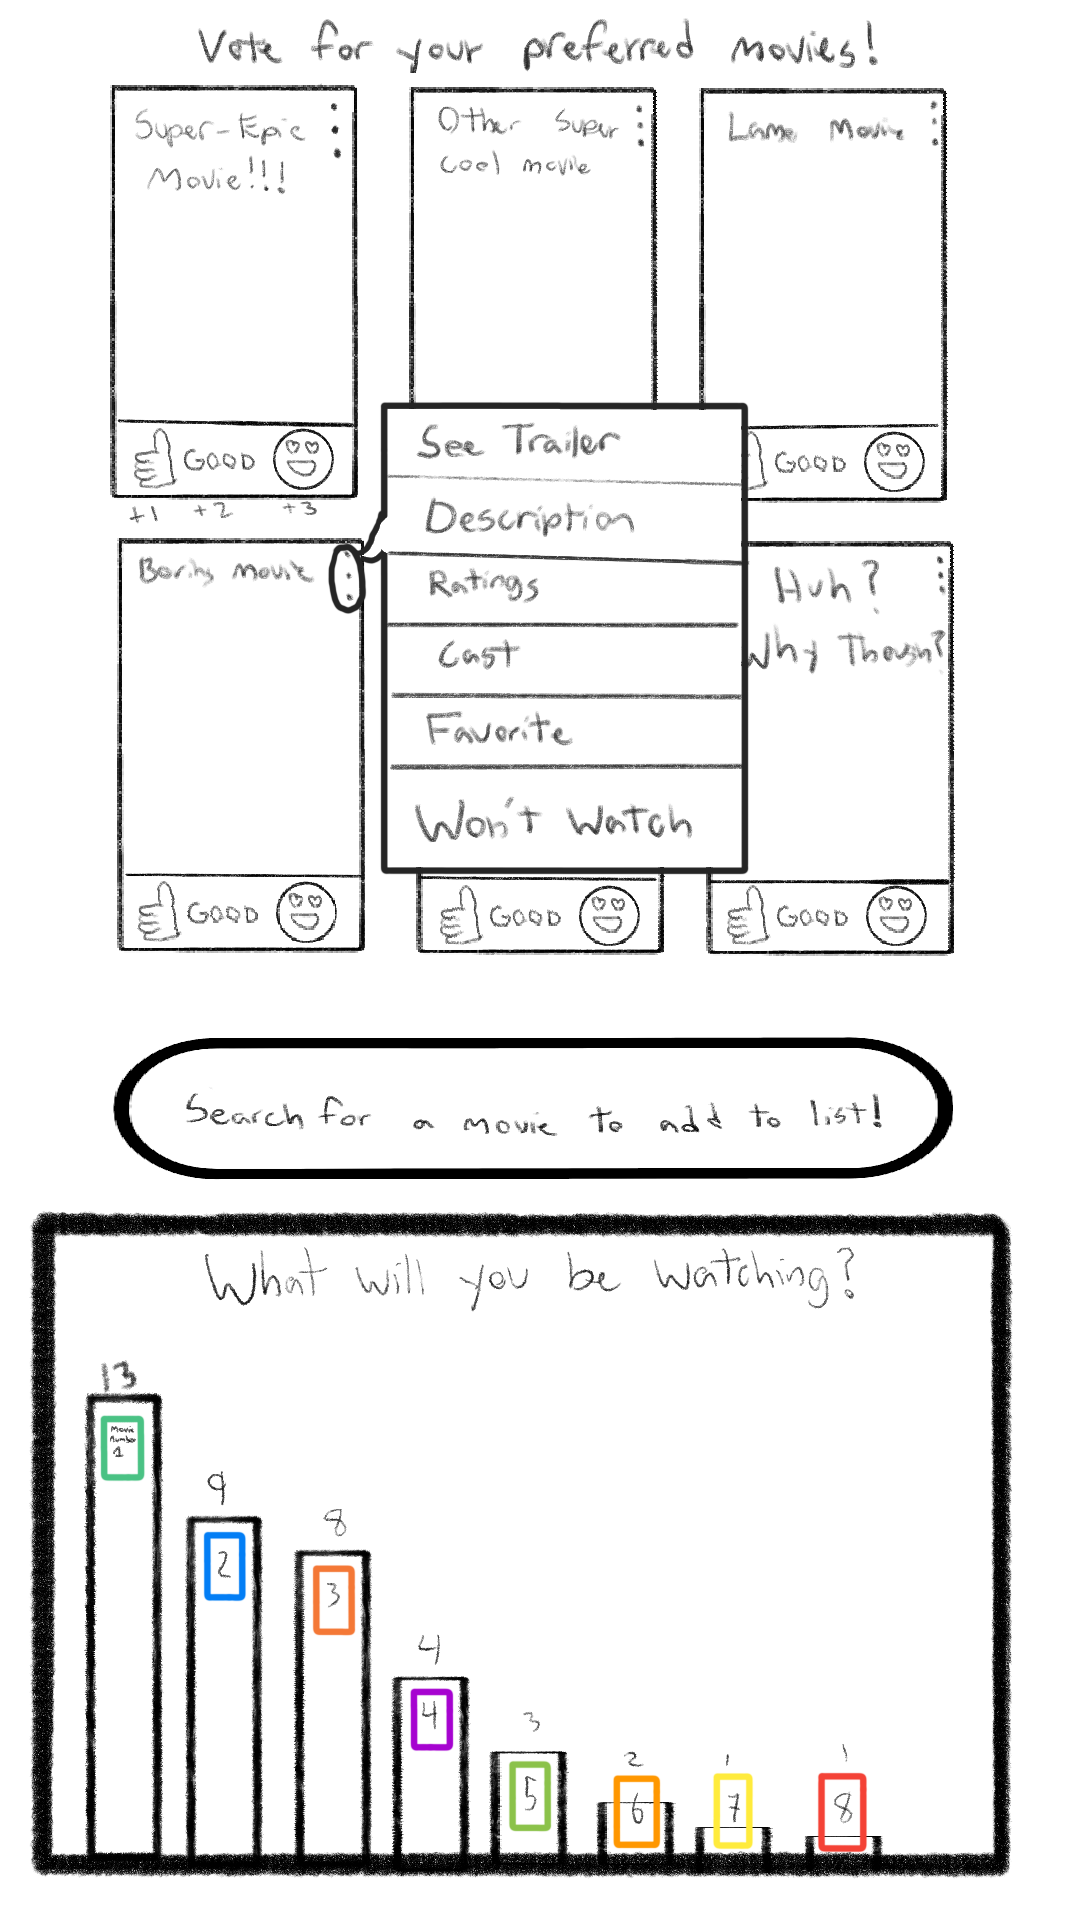 Vote for your preferred movies!
Super-Epic
Movie!!!
Other Super
Cool movie
Lame Movie
GOOD
GOOD
+1 +2 +3
See Trailer
Description
Ratings
Cast
Favorite
Won't Watch
Boring movie
Huh?
Why Though?
GOOD
GOOD
GOOD
Search for a movie to add to list!
What will you be watching?
13
Movie
Number
1
9
2
8
3
4
4
3
5
2
6
1
7
1
8